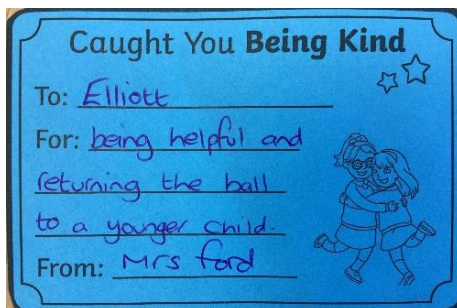 Caught You Being Kind
To: Elliott
For: being helpful and
returning the ball
to a younger child.
From: Mrs Ford